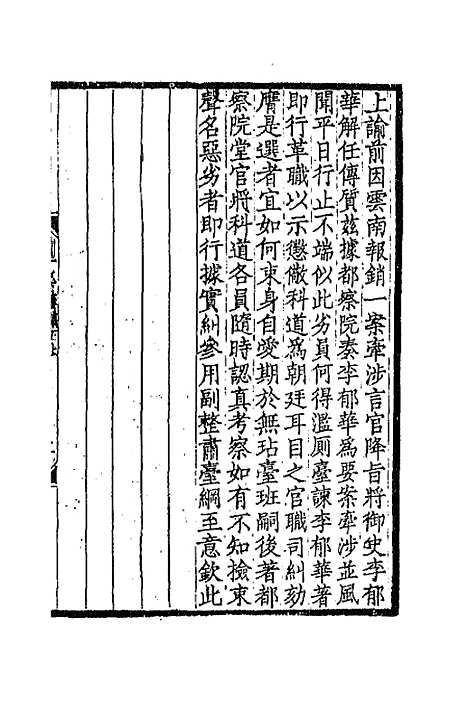 上諭前因雲南報銷一案牽涉言官降旨將御史李郁
華解任傳質茲據都察院奏李郁華爲要案牽涉並風
聞平日行止不端似此劣員何得濫廁臺諫李郁華著
即行革職以示懲儆科道爲朝廷耳目之官職司糾劾
膺是選者宜如何束身自愛期於無玷臺班嗣後著都
察院堂官將科道各員隨時認真考察如有不知檢束
聲名惡劣者即行據實糾參用副整肅臺綱至意欽此